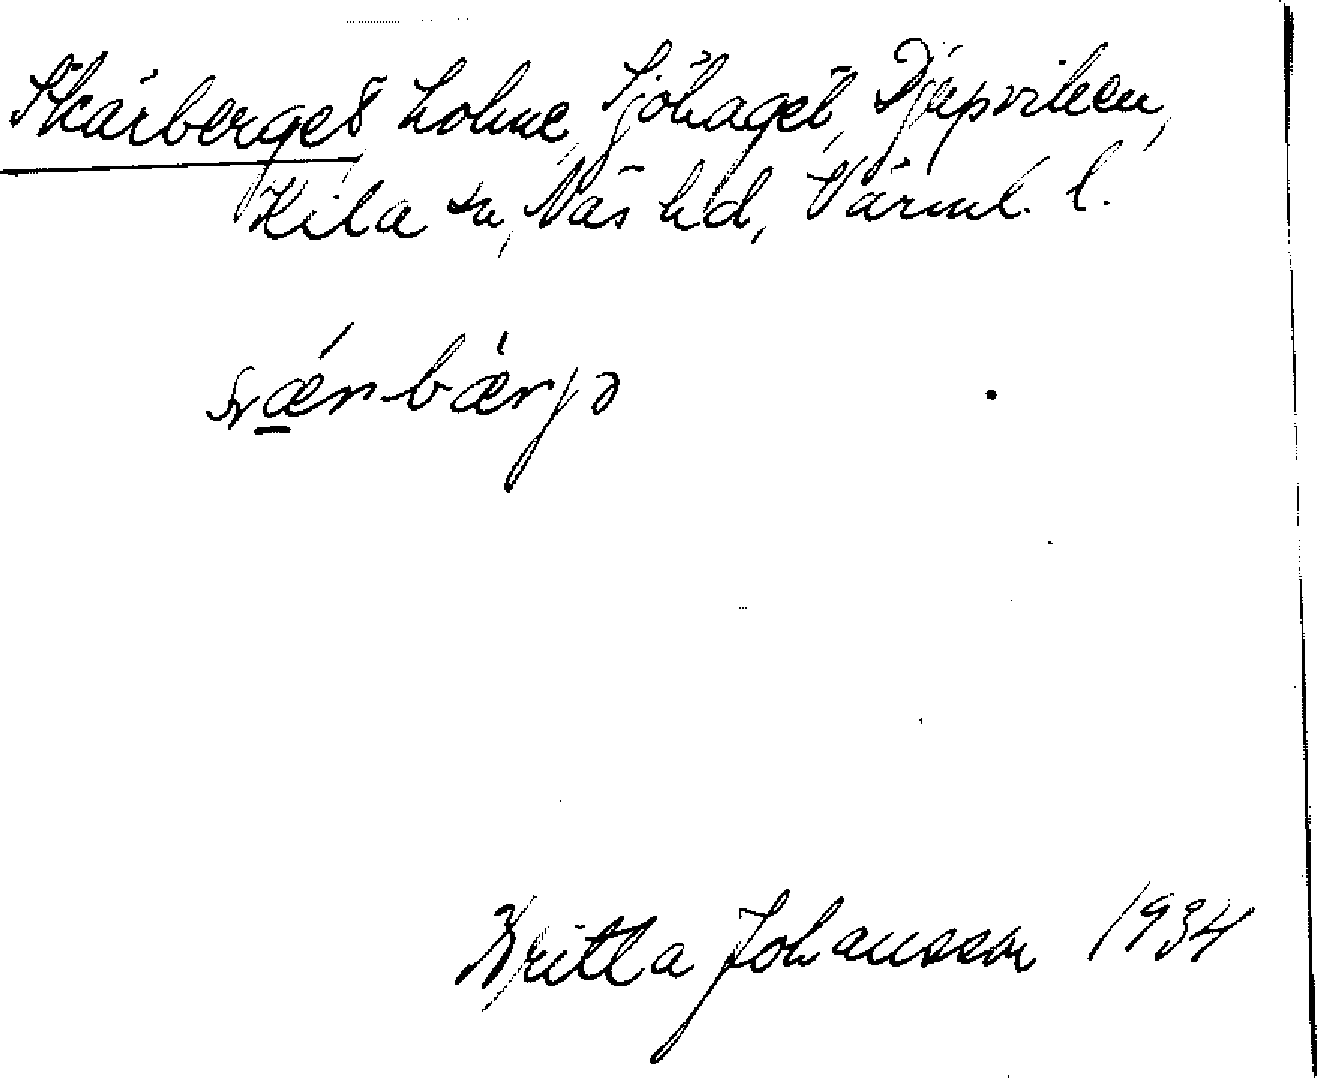 Skärberget Lohne, Sjöhaget, Djupviken,
Kila sn, Näs hd, Värml. l.
Britta Johansson 1934